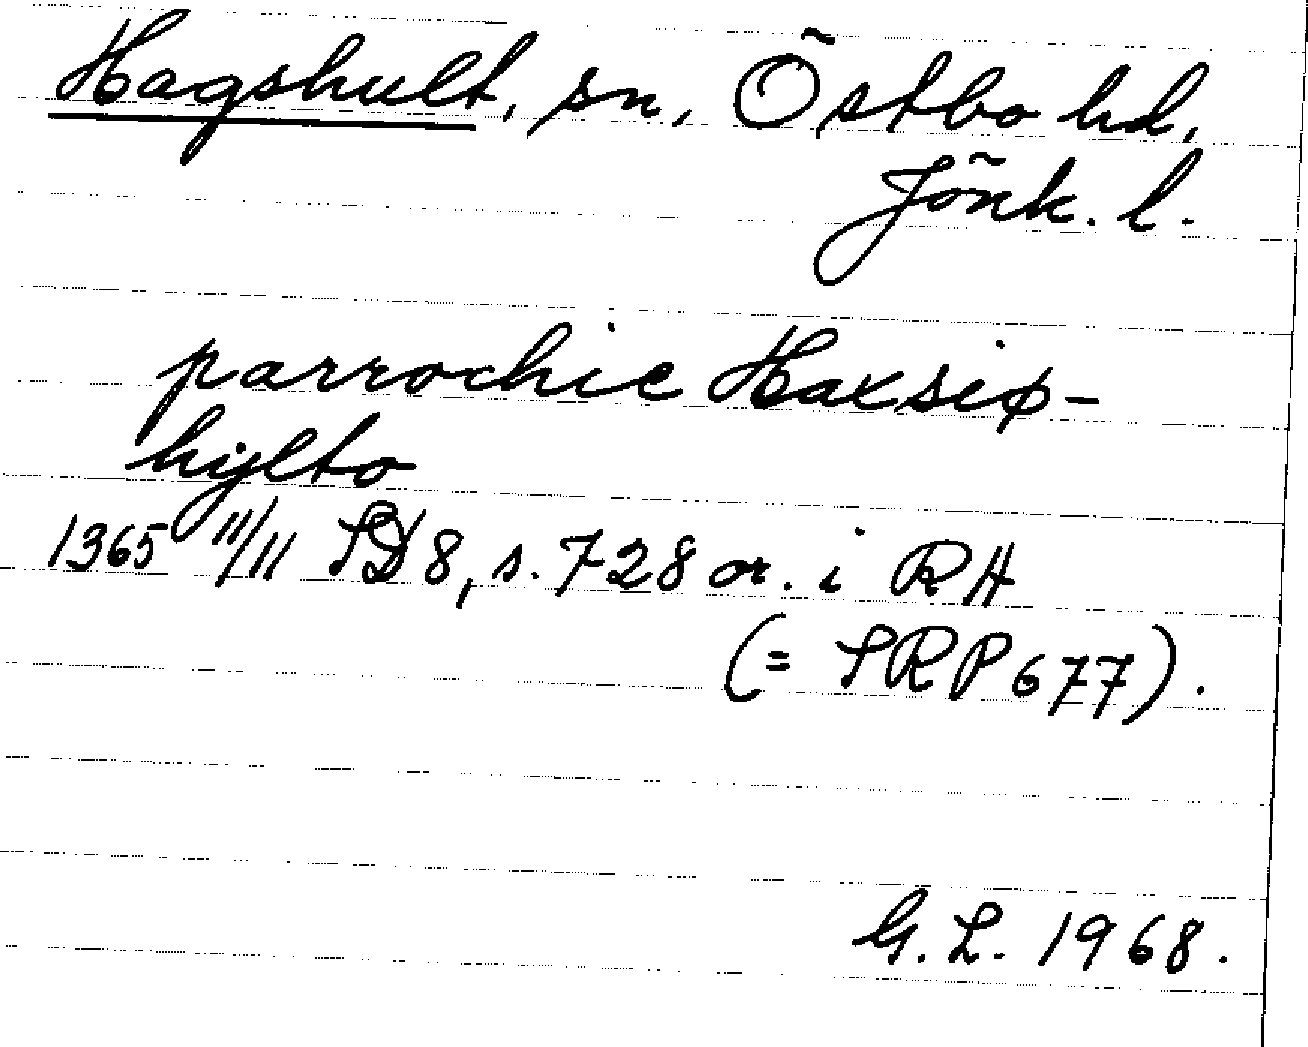 Hagshult, sn, Östbo hd,
Jönk. l.
parrochie Haxsiø-
hylto
1365 11/11 SD 8, s. 728 or. i RA
(= SRP 677).
G. L. 1968.